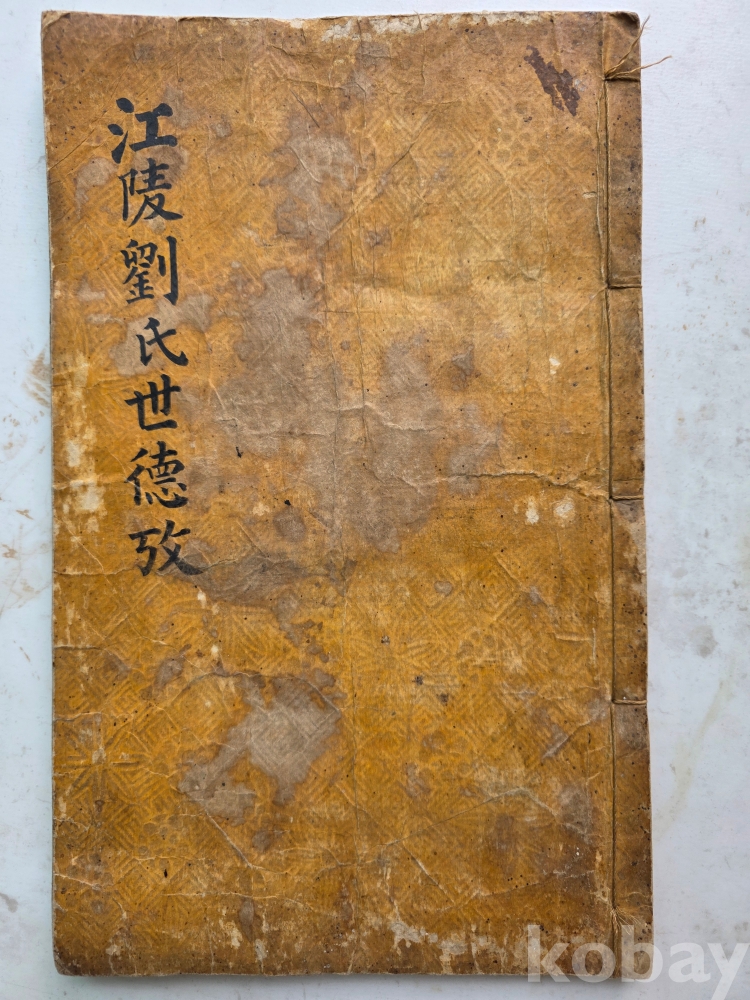 江陵劉氏世德攷
kobay